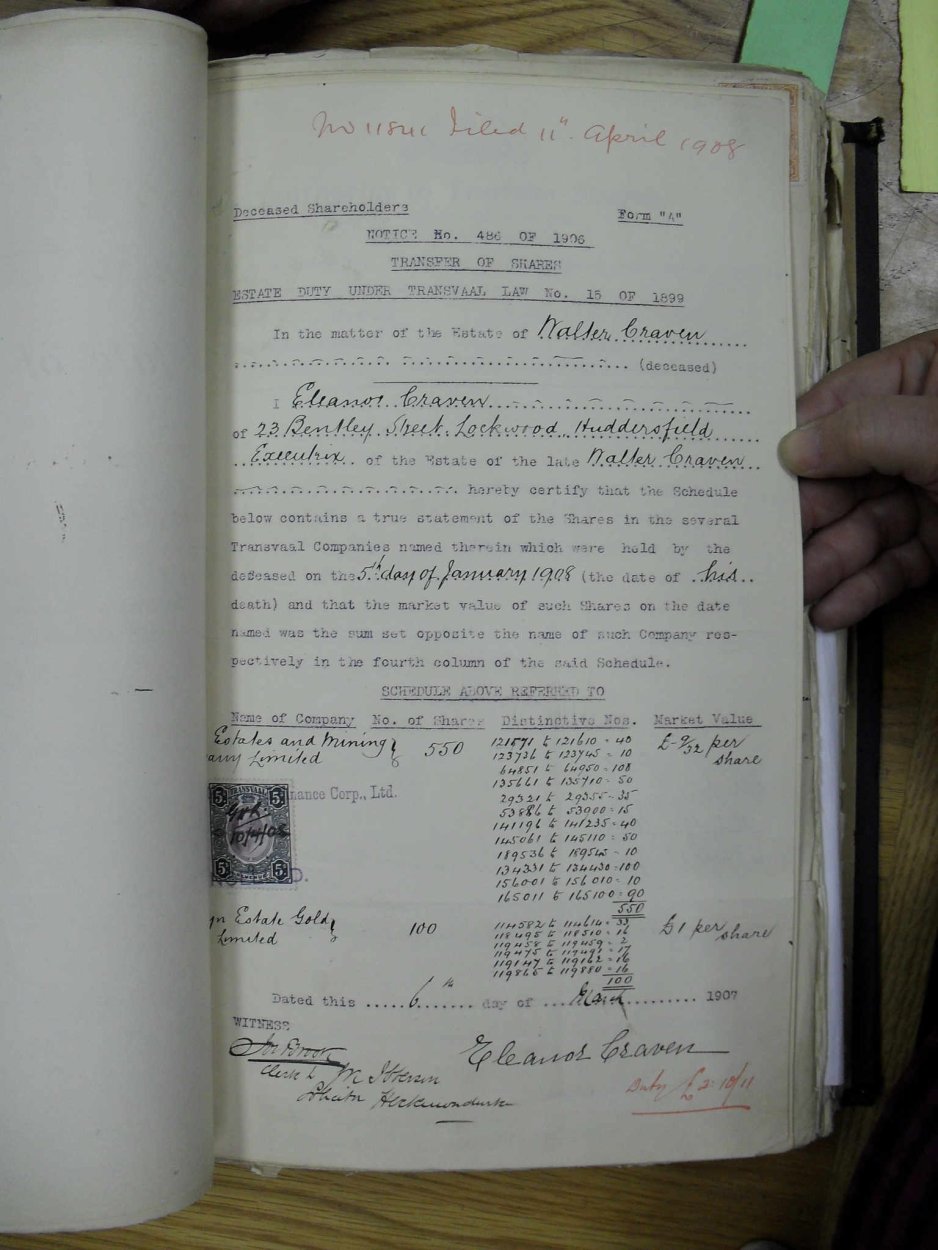 No 11841 Filed 11th April 1908
Deceased Shareholders Form "A"
NOTICE No. 486 OF 1906
TRANSFER OF SHARES
ESTATE DUTY UNDER TRANSVAAL LAW No. 15 OF 1899
In the matter of the Estate of Walter Craven
(deceased)
I Eleanor Craven
of 23 Bentley Street, Lockwood, Huddersfield
Executrix of the Estate of the late Walter Craven
hereby certify that the Schedule
below contains a true statement of the Shares in the several
Transvaal Companies named therein which were held by the
deceased on the 5th day of January 1908 (the date of his
death) and that the market value of such Shares on the date
named was the sum set opposite the name of such Company res-
pectively in the fourth column of the said Schedule.
SCHEDULE ABOVE REFERRED TO
Name of Company No. of Shares Distinctive Nos. Market Value
Estates and Mining 550 121571 to 121610 = 40 £-9/32 per
any Limited 123736 to 123745 = 10 share
64851 to 64950 = 100
135661 to 135710 = 50
TRANSVAAL
5/- 5/-
nance Corp., Ltd. 29321 to 29355 = 35
10/4/08
53886 to 53900 = 15
141196 to 141235 = 40
145061 to 145110 = 50
189536 to 189545 = 10
134331 to 134430 = 100
156001 to 156010 = 10
165011 to 165100 = 90
550
Estate Gold 100 114582 to 114614 = 33 £1 per share
Limited 118495 to 118510 = 16
119458 to 119459 = 2
119475 to 119491 = 17
119147 to 119162 = 16
119865 to 119880 = 16
100
Dated this 6th day of March 1907
WITNESS
Jos Brook Eleanor Craven
Clerk to
Solicitor Heckmondwike
Duty £2:10/11